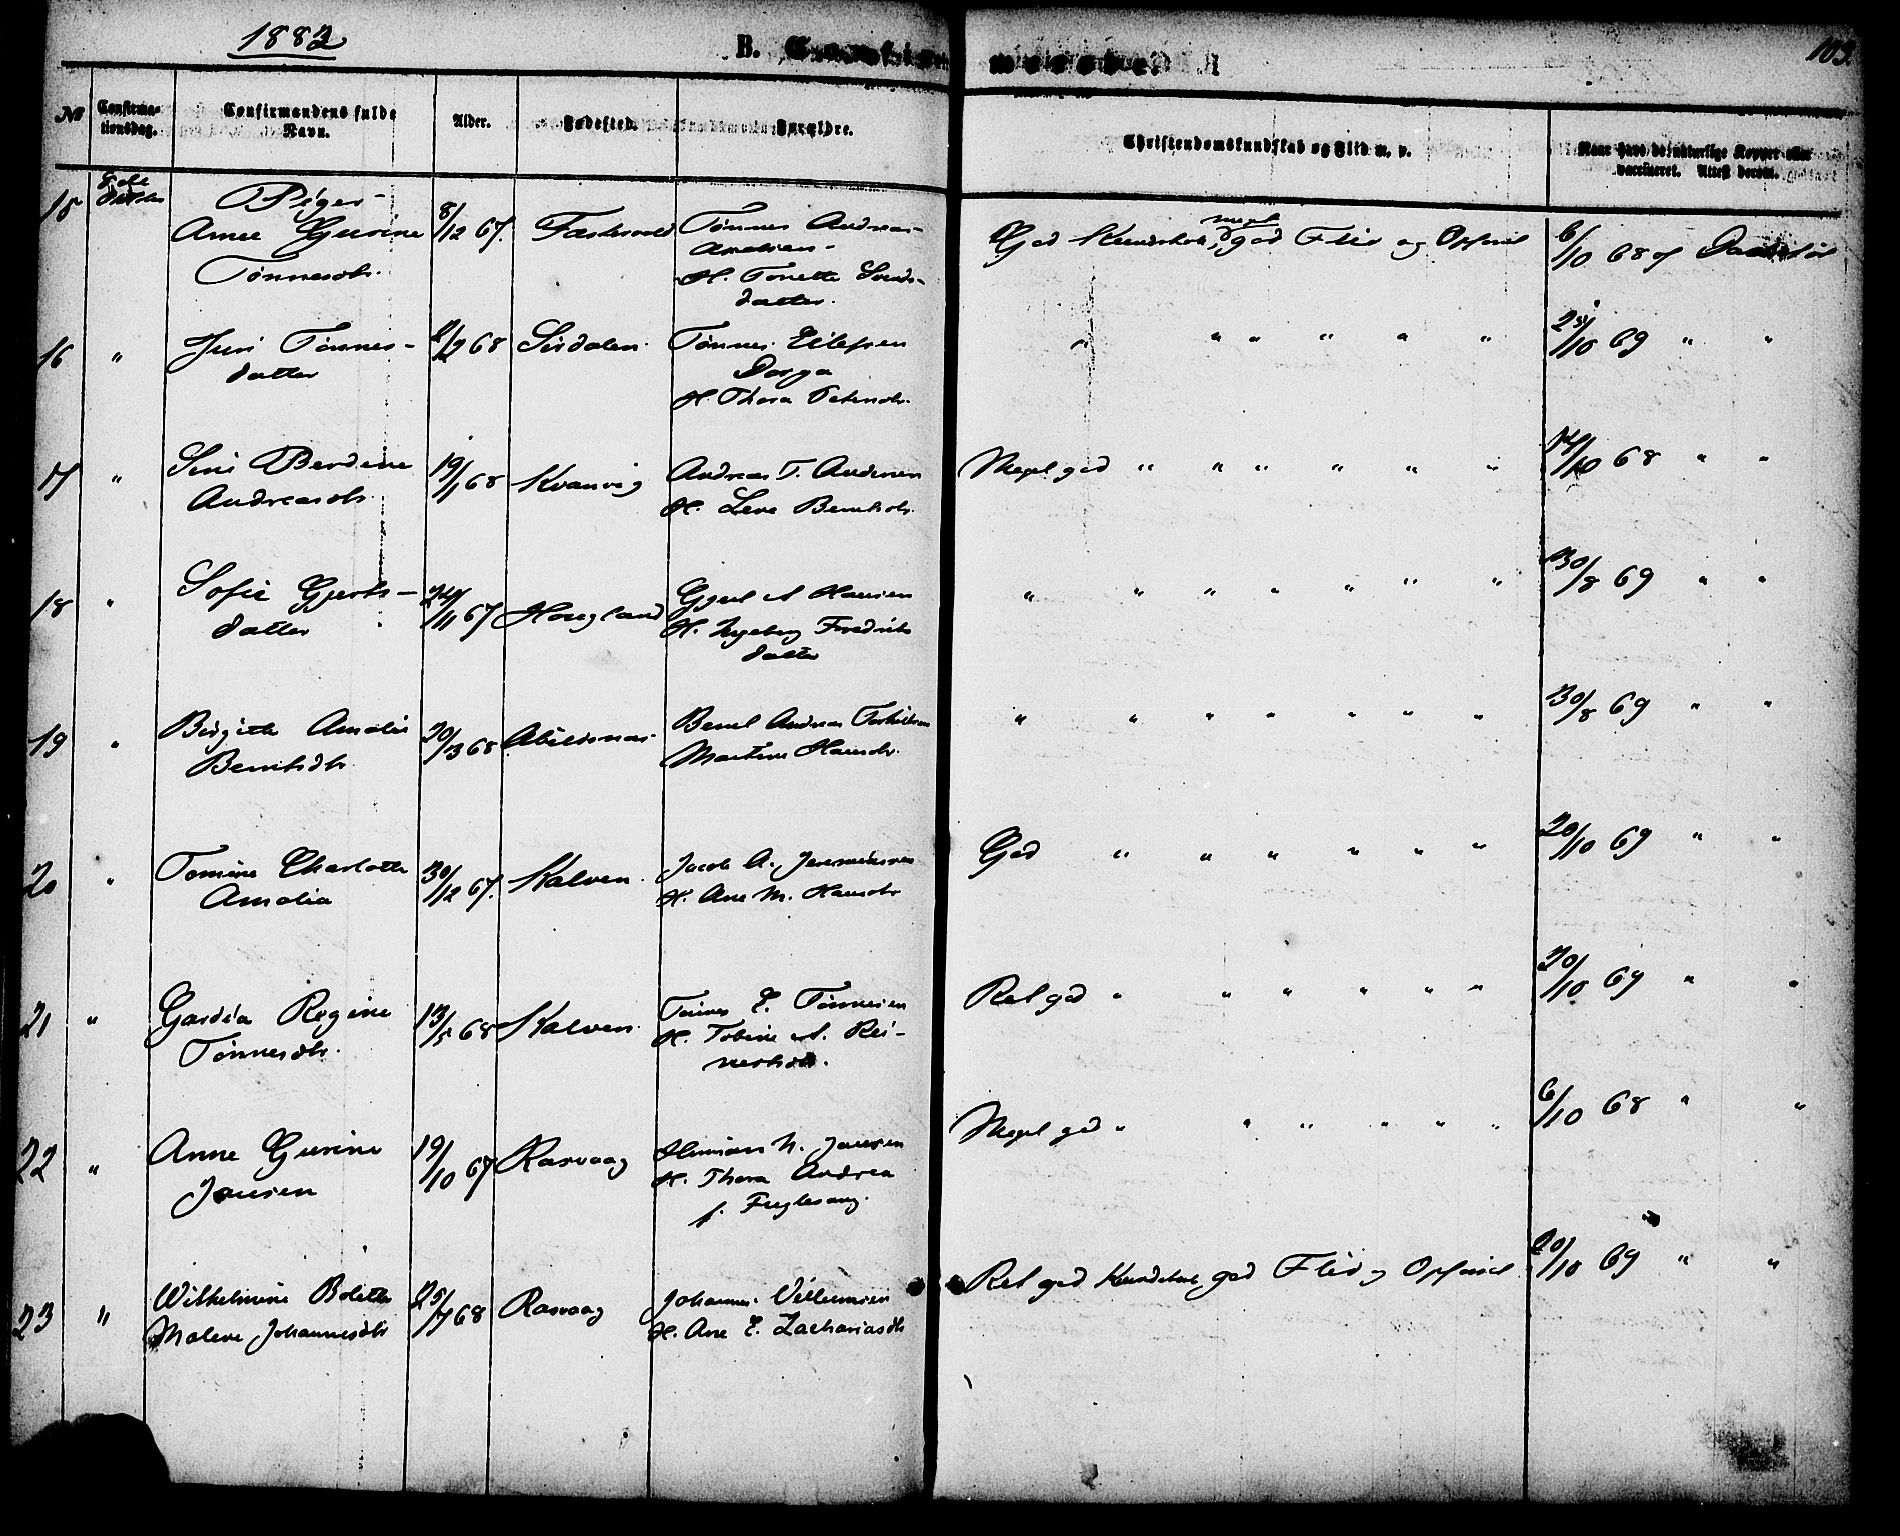 1883
B. Confirmerede.
103.
№
Confirmationsdag.
Confirmandens fulde Navn.
Alder.
Fødested.
Forældre.
Christendomskundskab og Flid m. v.
Naar havt de naturlige Kopper eller vaccineret. Attest derom.
Piger
15 Anne Gurine Tønnesdtr. 8/12 67. Tønnes Andreas- H. Tonette datter. God Kundskab, meget god Flid og Opførsel 6/10 68 af
16 " Juri Tønnes-datter 68 Sirdalen. Tønnes Eilefsen Dorga H. Thora " " " " " " 69 " "
17 " Sini Berdine Andreasdtr. 19/1 68 Kvanvig Andreas T. Andersen H. Lene Meget god " " " " " " 14/10 68 " "
18 " Sofie Gjerts-datter 24/11 67 Hougland Gjert A Hansen H. Ingeborg Fredriks datter " " " " " " " 30/8 69 " "
19 " Birgitte Amalie Berntsdtr. 20/3 68 Abelsnæs Bernt Andreas Martine Hansdtr. " " " " " " " 30/8 69 " "
20 " Tomine Charlotte Amalia 30/12 67. Kalven. Jacob A. Jeremiassen H. Ane M. Hansdtr God " " " " " " 20/10 69 " "
21 " Regine Tønnesdtr. 13/5 68 Kalven. Tønnes E. Tønnesen H. Tobine A. Rei-nertsdtr. Ret god " " " " " " 20/10 69 " "
22 " Anne Gurine Jansen 19/10 67 Rasvaag Herman N. Jansen H. Thora Andrea f. Fuglesang. Meget god " " " " " " 6/10 68 " "
23 " Wilhelmine Bolette Malene Johannesdtr 25/7 68 Rasvaag Johannes Villumsen H. Ane E. Zachariasdtr Ret god Kundskab, god Flid og Opførsel 20/10 69 " "